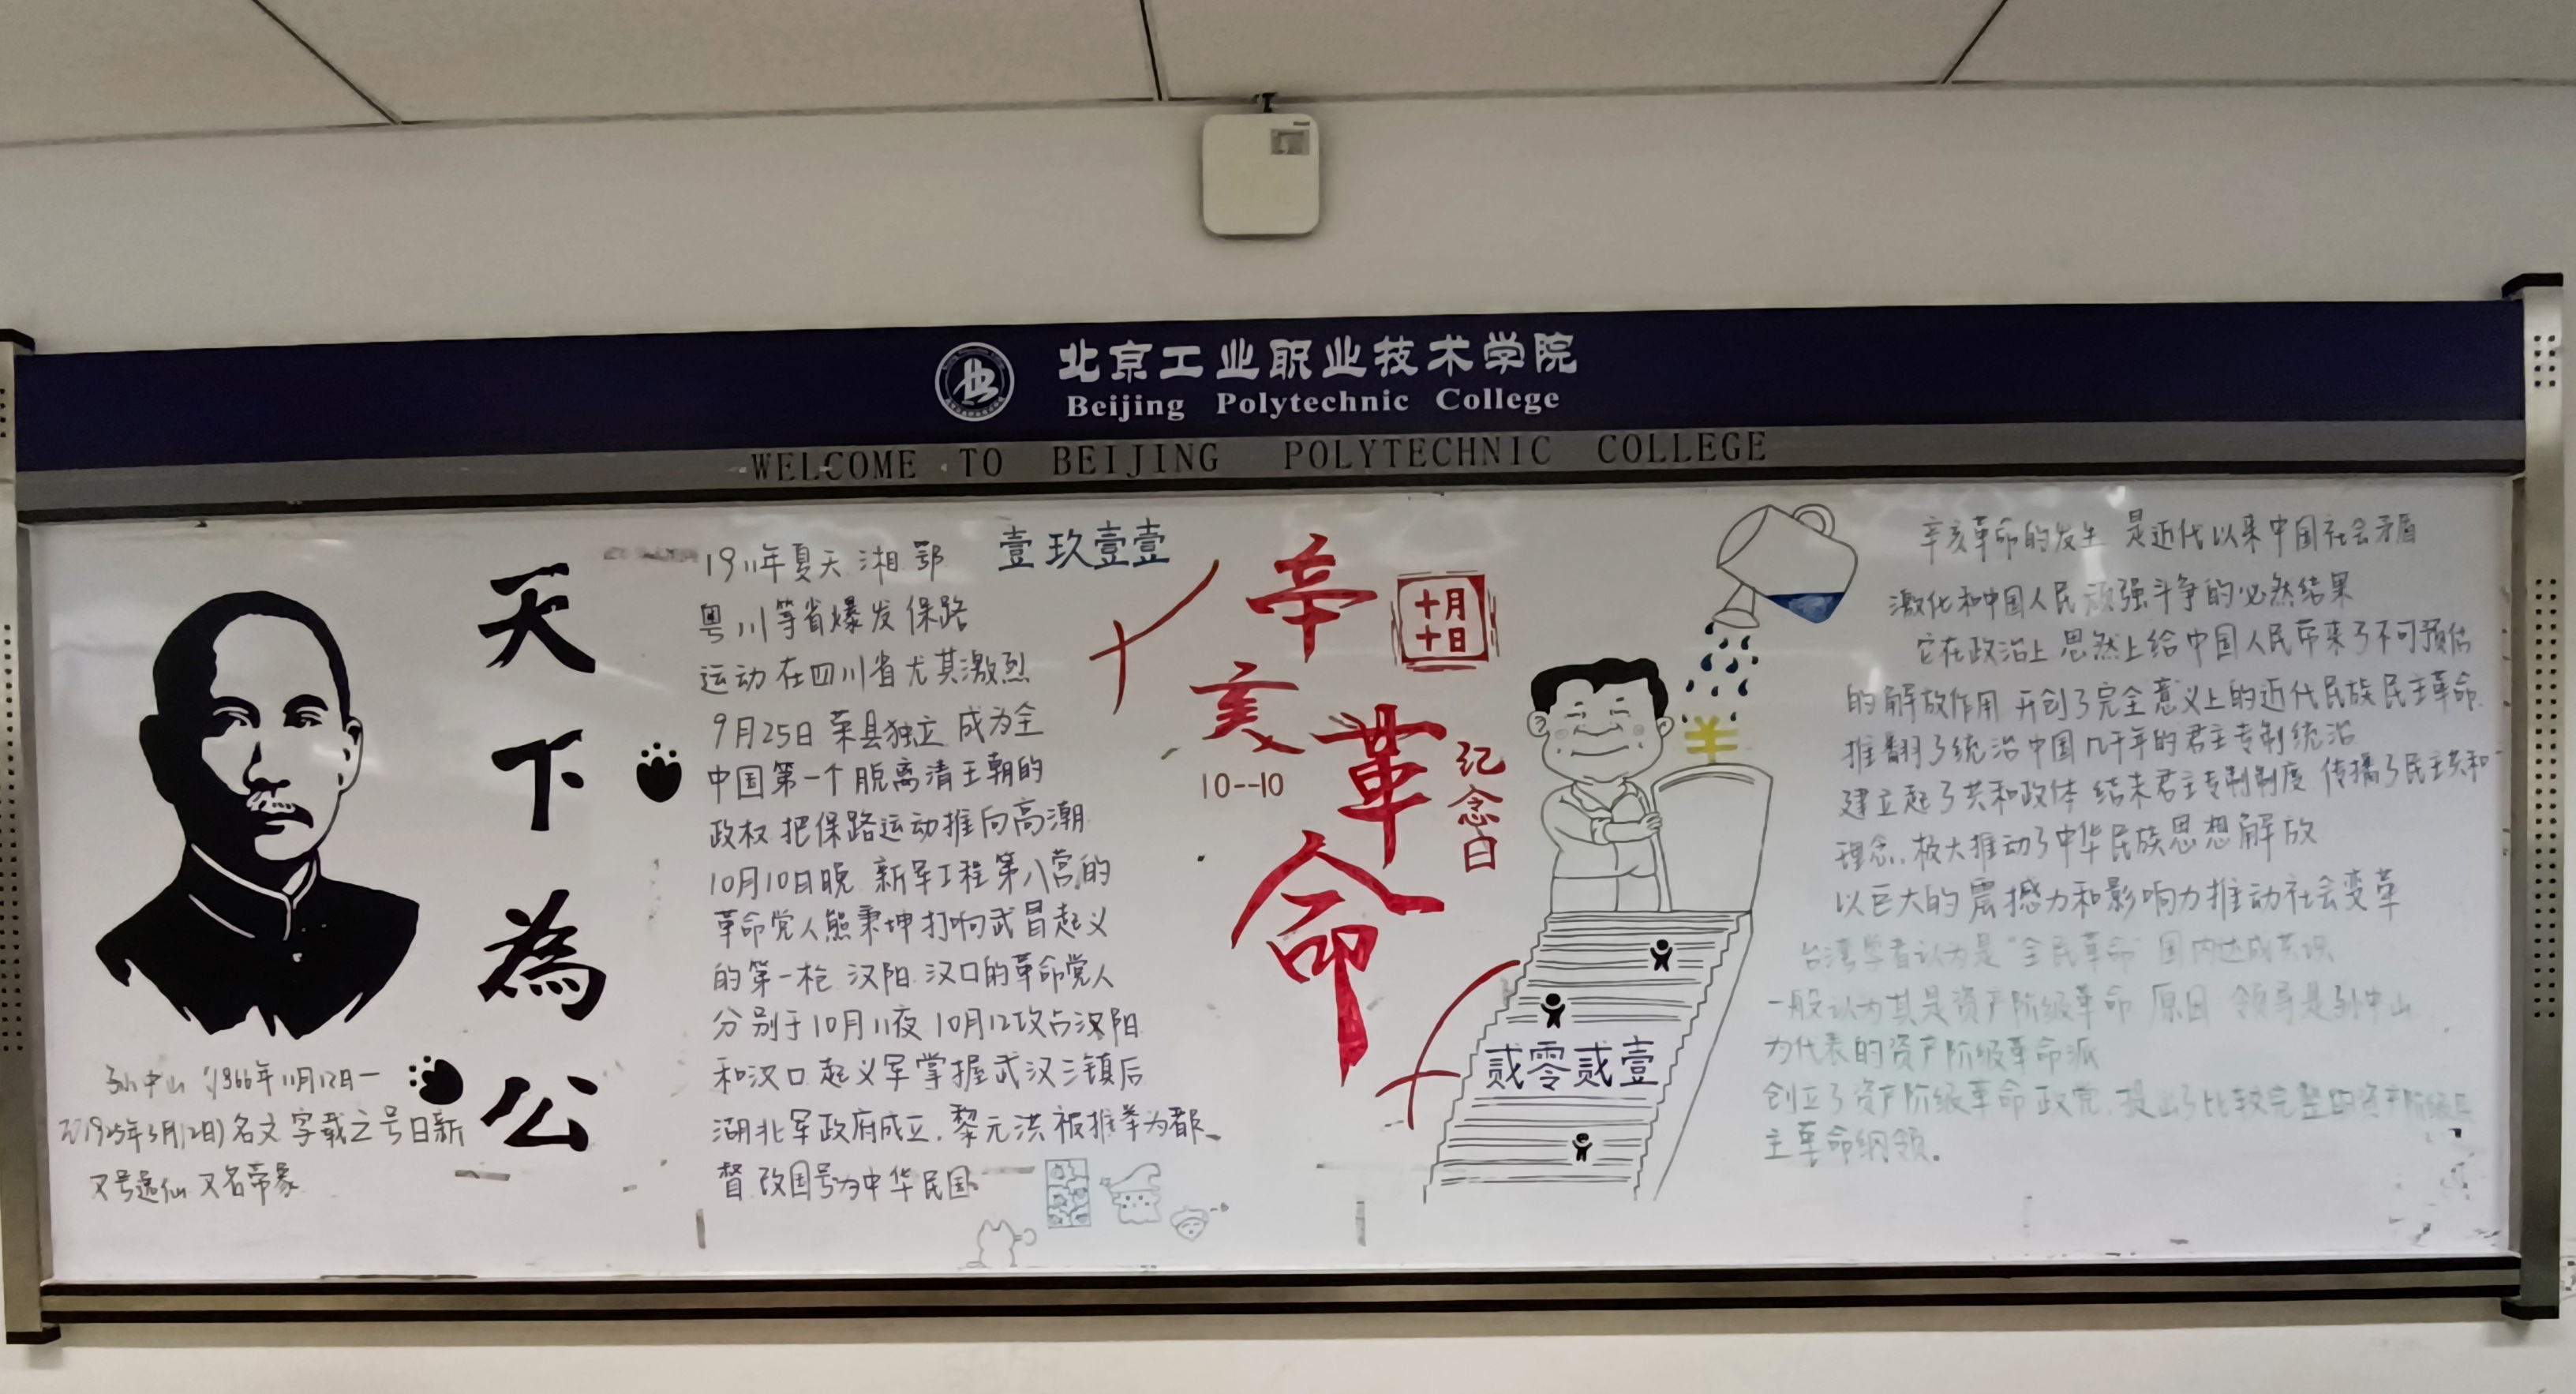 北京工业职业技术学院
Beijing Polytechnic College
WELCOME TO BEIJING POLYTECHNIC COLLEGE
天下為公
孙中山 (1866年11月12日一
1925年3月12日) 名文 字载之 号日新
又号逸仙 又名帝象
壹玖壹壹
1911年夏天 湘 鄂
粤 川等省爆发保路
运动 在四川省尤其激烈
9月25日 荣县独立 成为全
中国第一个脱离清王朝的
政权 把保路运动推向高潮
10月10日晚 新军工程第八营的
革命党人熊秉坤打响武昌起义
的第一枪 汉阳 汉口的革命党人
分别于10月11夜 10月12攻占汉阳
和汉口 起义军掌握武汉三镇后
湖北军政府成立，黎元洪被推举为都
督 改国号为中华民国
辛亥革命
十月
十日
纪念日
10--10
¥
贰零贰壹
辛亥革命的发生 是近代以来中国社会矛盾
激化和中国人民顽强斗争的必然结果
它在政治上 思然上给中国人民带来了不可预估
的解放作用 开创了完全意义上的近代民族民主革命
推翻了统治中国几千年的君主专制统治
建立起了共和政体 结束君主专制制度 传播了民主共和
理念，极大推动了中华民族思想解放
以巨大的震撼力和影响力推动社会变革
台湾学者认为是“全民革命” 国内达成共识
一般认为其是资产阶级革命 原因 领导是孙中山
为代表的资产阶级革命派
创立了资产阶级革命政党，提出了比较完整的资产阶级民
主革命纲领。